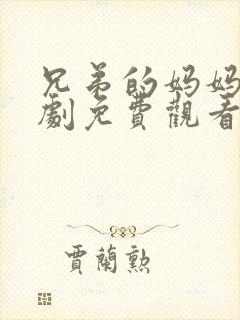 兄弟的妈妈
劇免費觀看
賈蘭勲